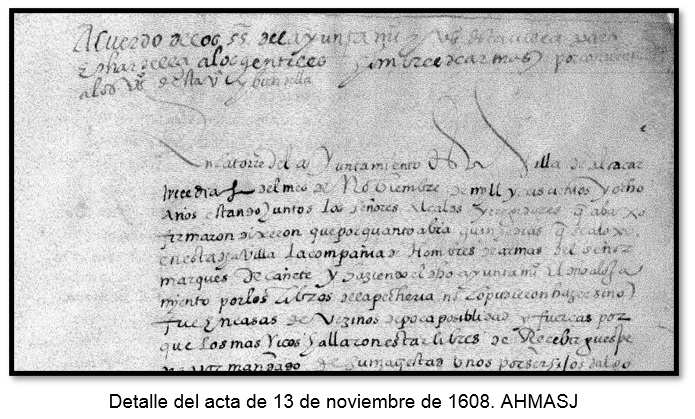 Acuerdo de los ss. del ayuntamiº y vºs desta villa para
echar de ella a los gentiles hombres de armas por
a los vºs desta vª y bien della
En la torre del ayuntamiento de la Villa de alcaçar
trece dias del mes de Noviembre de mill y seiscientos y ocho
Años estando juntos los señores Alcaldes y rregidores q abaxo
firmaron dixeron que por quanto abra quince dias q se aloxo
en esta dha villa La compañia de Hombres de armas del señor
marques de cañete y haziendo el dho ayuntamiº el dho aloxa
miento por los Libros de la pecheria nº Lo pudieron hazer sino
fue En casas de Vezinos de poca posiblidad y fuercas por
que Los mas Ricos se allaron estar libres de Recebir guespe
mandado de su magestad Unos por ser
Detalle del acta de 13 de noviembre de 1608. AHMASJ